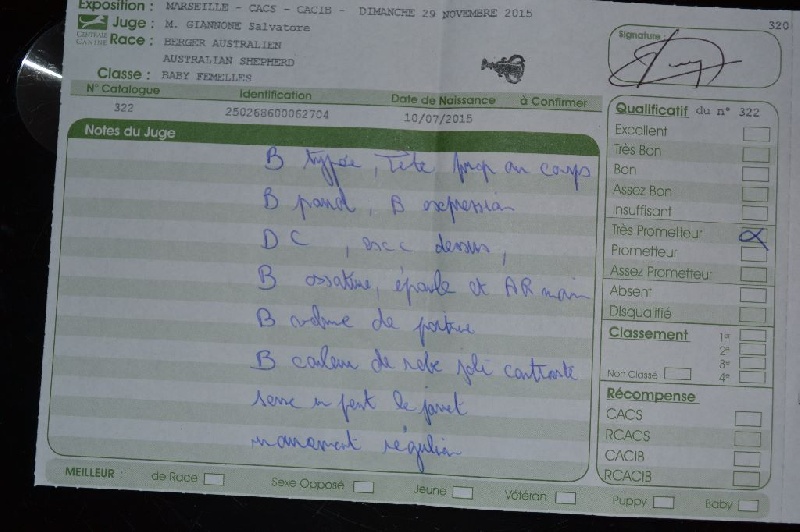 Exposition : MARSEILLE - CACS - CACIB - DIMANCHE 29 NOVEMBRE 2015
320
CENTRALE CANINE
Juge : M. GIANNONE Salvatore
Race : BERGER AUSTRALIEN
AUSTRALIAN SHEPHERD
Classe : BABY FEMELLES
Signature :
N° Catalogue Identification Date de Naissance à Confirmer
322 250268600062704 10/07/2015
Notes du Juge
B typée, Tête prop au corps
B pansd, B expression
D C, dessus,
B ossature, épaule et AR main
B volume de poitrine
B couleur de robe joli contraste
serre un peut le jarret
mouvement régulier
Qualificatif du n° 322
Excellent
Très Bon
Bon
Assez Bon
Insuffisant
Très Prometteur
Prometteur
Assez Prometteur
Absent
Disqualifié
Classement 1e
2e
3e
Non Classé 4e
Récompense
CACS
RCACS
CACIB
RCACIB
MEILLEUR : de Race Sexe Opposé Jeune Vétéran Puppy Baby